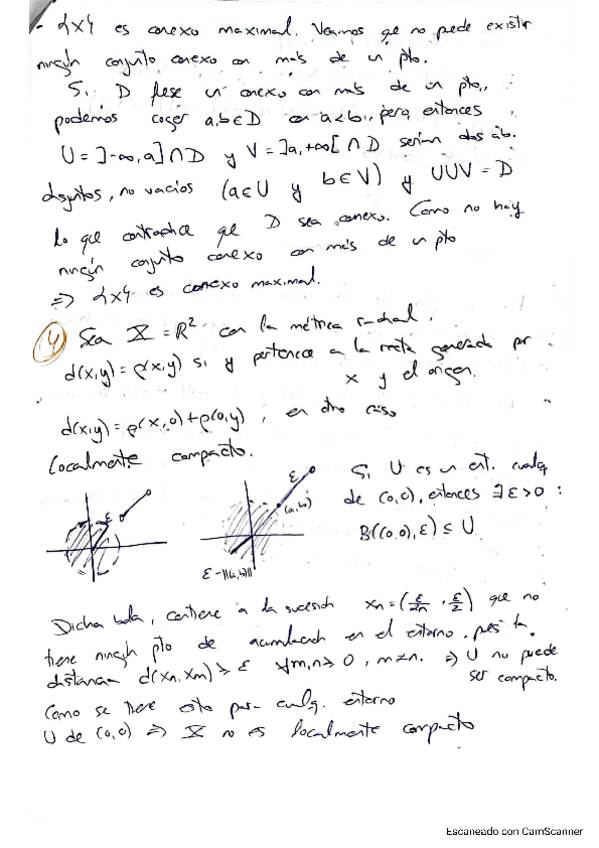 - {x} es conexo maximal. Veamos qe no pede existir
ningún conjunto conexo con más de un pto.
Si D fuese un conexo con más de un pto.,
podemos coger a,b∈D con a<b, pero entonces
U = ]-∞,a]∩D y V = ]a,+∞[ ∩ D serían dos ab.
disjuntos, no vacíos (a∈U y b∈V) y U∪V = D
lo que contradice qe D sea conexo. Como no hay
ningún conjunto conexo con más de un pto
⇒ {x} es conexo maximal.
④ Sea X = R² con la métrica radial.
d(x,y) = ρ(x,y) si y pertenece a la recta generada por
x y el origen.
d(x,y) = ρ(x,0)+ρ(0,y), en otro caso
Localmente compacto.
Si U es un ent. cualq
de (0,0), entonces ∃ε>0 :
B((0,0),ε) ⊆ U
ε
ε
(a,b)
ε-||(a,b)||
Dicha bola, contiene a la sucesión xn = (ε/2n, ε/2) que no
tiene ningún pto de acumulación en el entorno, pues la
distancia d(xn,xm) ≥ ε ∀m,n>0, m≠n. ⇒ U no puede
ser compacto.
Como se tiene esto para cualq. entorno
U de (0,0) ⇒ X no es localmente compacto
Escaneado con CamScanner